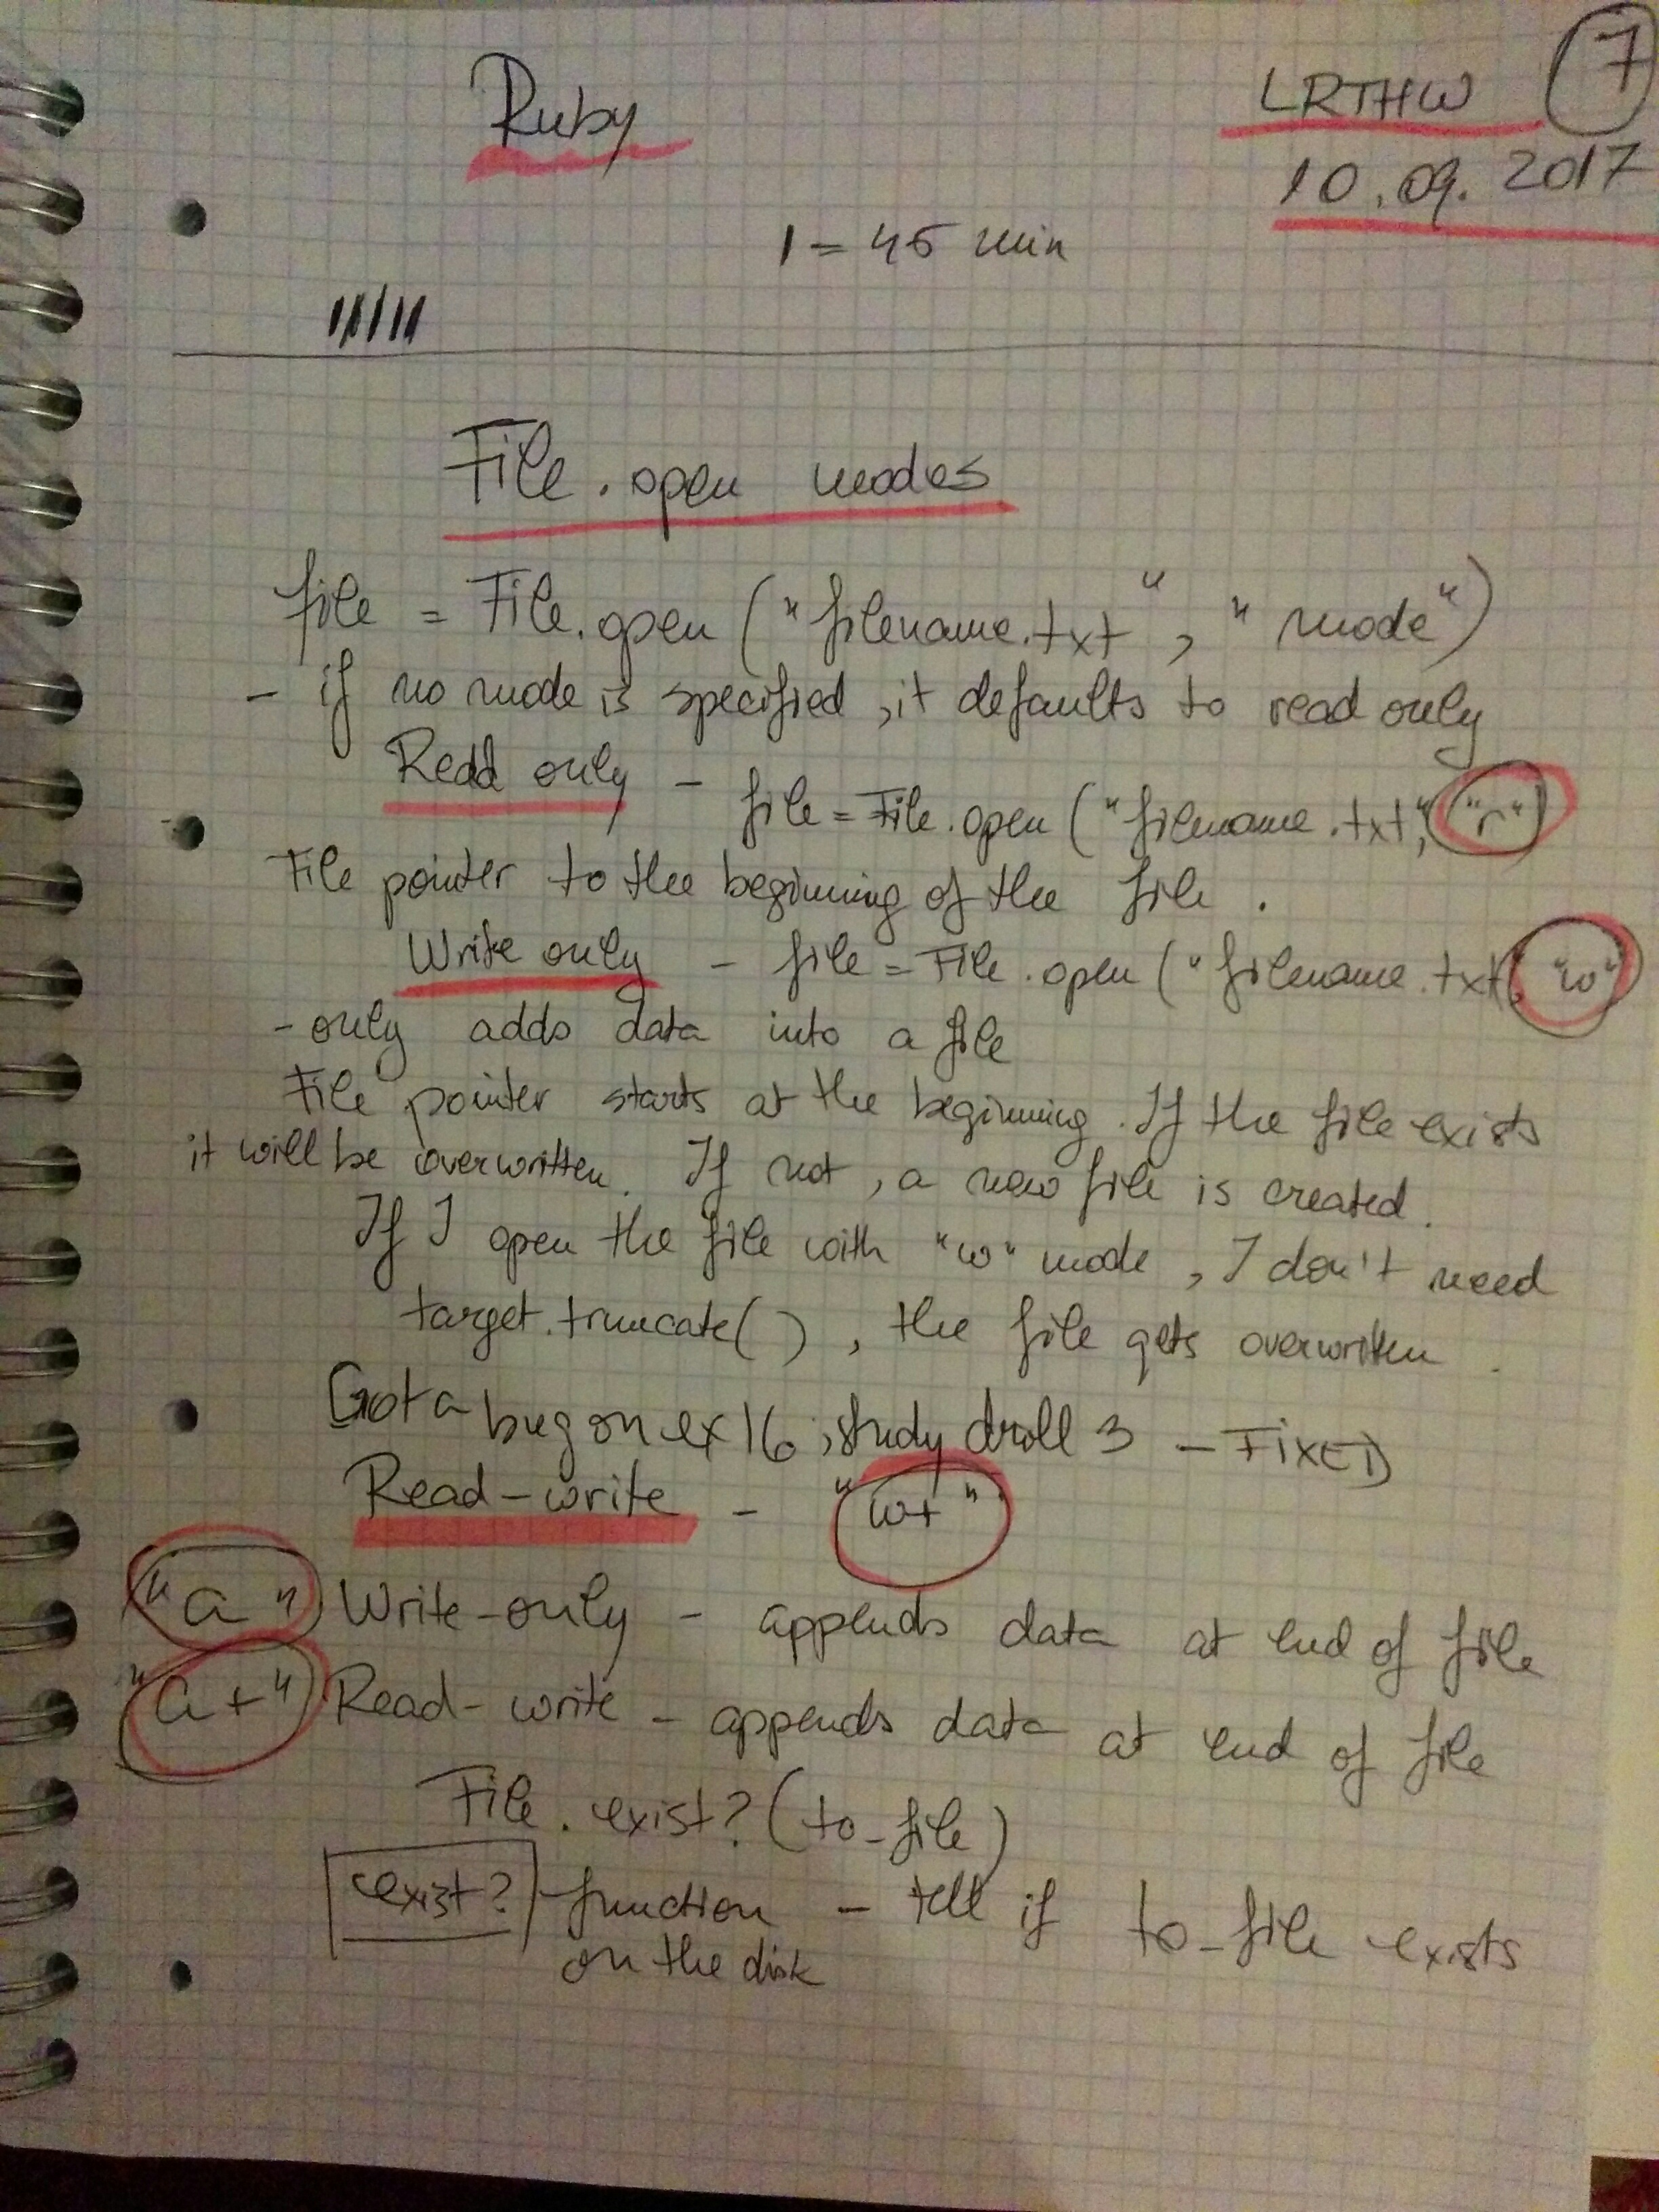 Ruby
LRTHW 7
10.09.2017
1 = 45 min
File.open modes
file = File.open ("filename.txt", "mode")
- if no mode is specified, it defaults to read only
Read only - file = File.open ("filename.txt", "r")
File pointer to the beginning of the file.
Write only - file = File.open ("filename.txt", "w"
- only adds data into a file
File pointer starts at the beginning. If the file exists
it will be overwritten. If not, a new file is created.
If I open the file with "w" mode, I don't need
target.truncate(), the file gets overwritten.
Got a bug on ex16, study droll 3 - FIXED
Read-write - "w+"
"a" Write-only - appends data at end of file
"a+" Read-write - appends data at end of file
File.exist? (to_file)
exist? function - tell if to_file exists
on the disk